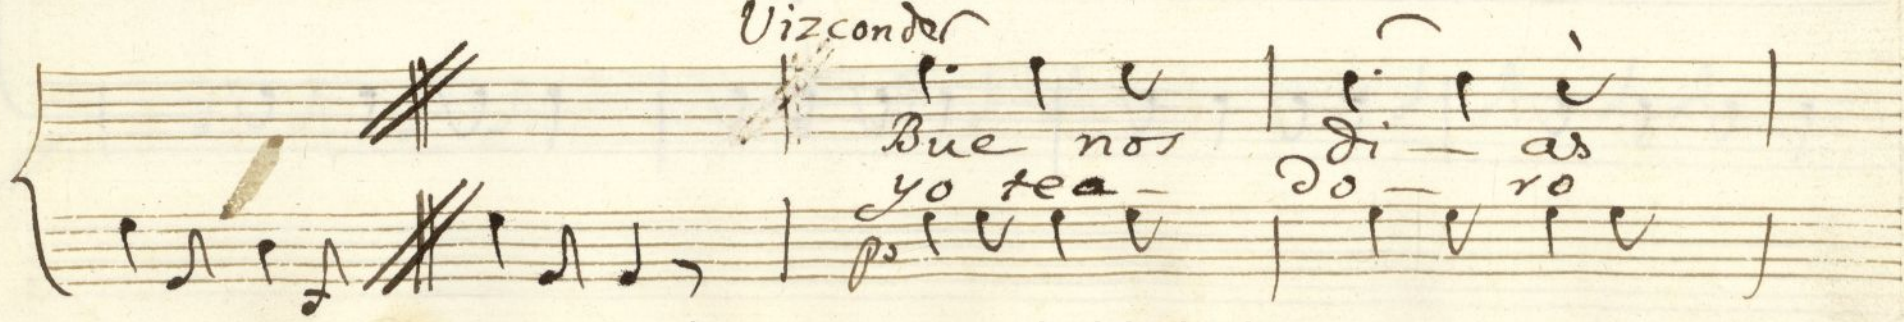 Vizconde
Bue nos di – as
yo tea – do – ro
po